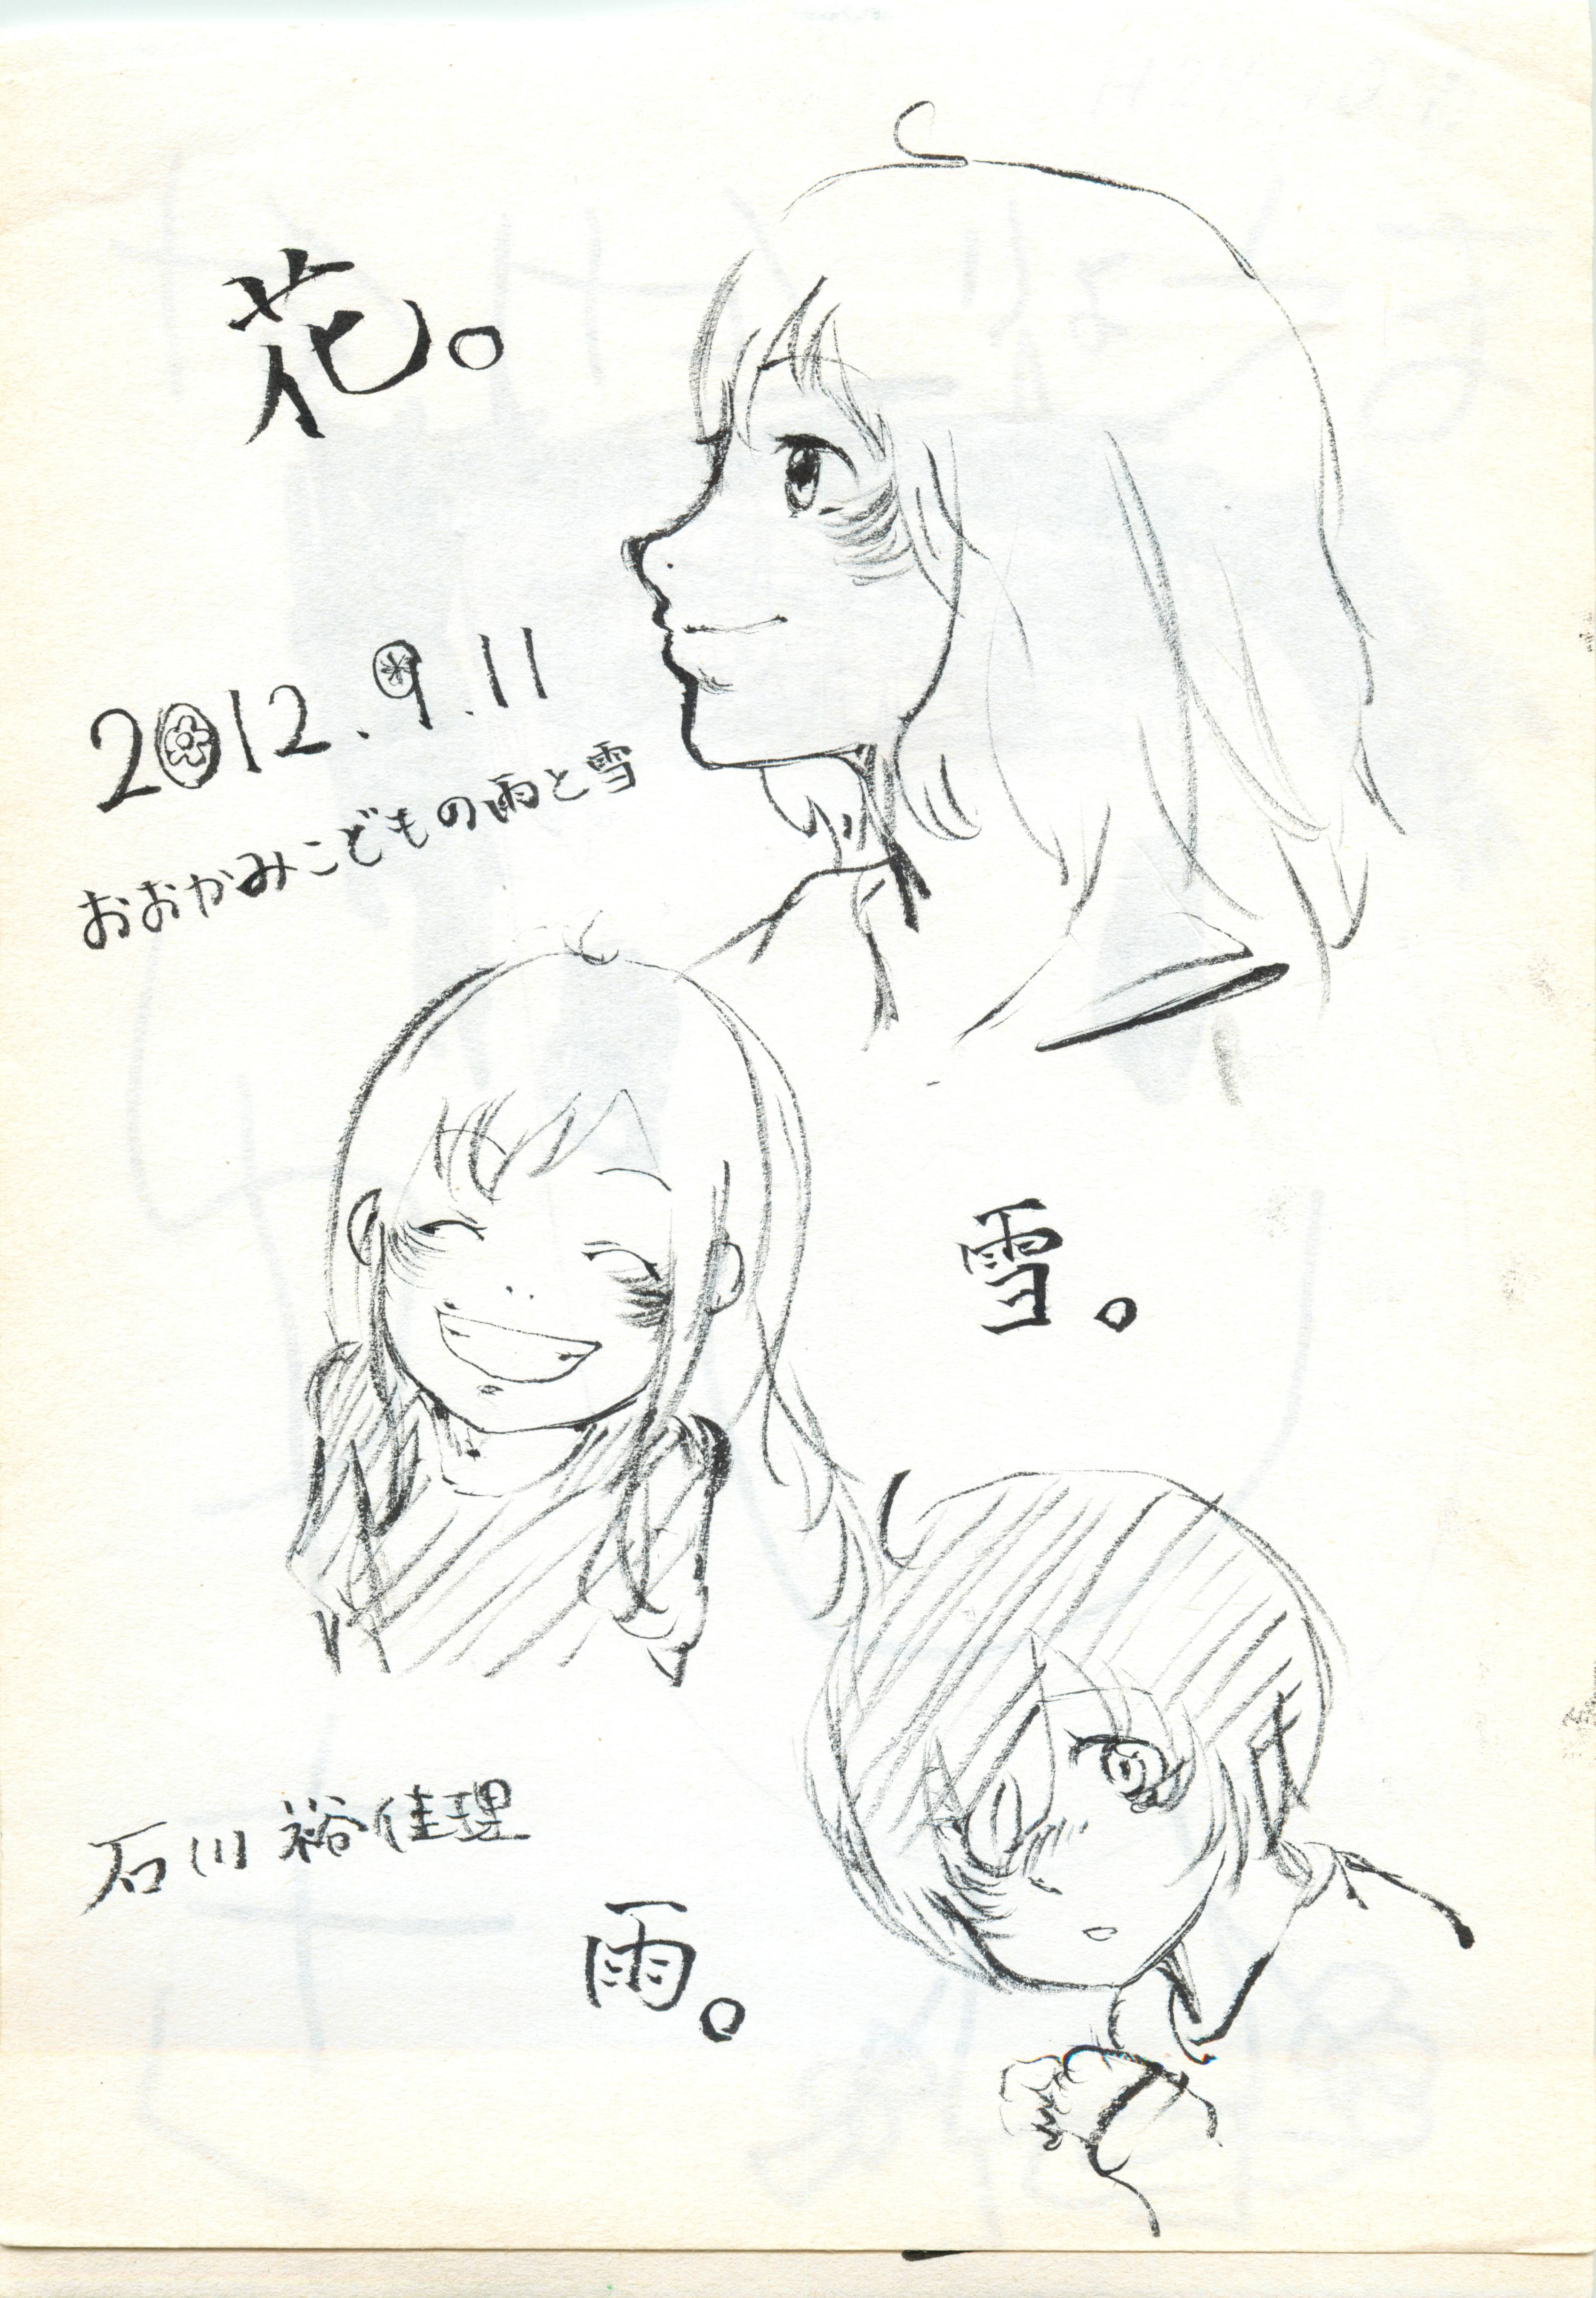 花。
2012.9.11
おおかみこどもの雨と雪
雪。
石川 裕佳理
雨。